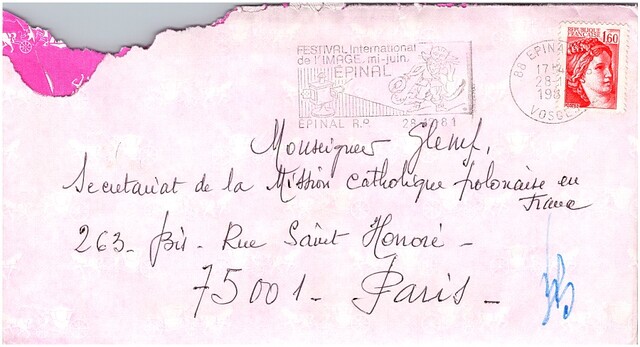 FESTIVAL International
de l'IMAGE.mi-juin.
EPINAL
EPINAL R.P. 81
REPUBLIQUE
FRANCAISE
1,60
88 EPINAL
VOSGES
Monseigneur Glemp,
Secretariat de la Mission Catholique polonaise en
France
263 - Bis - Rue Saint Honoré -
75001 - Paris -